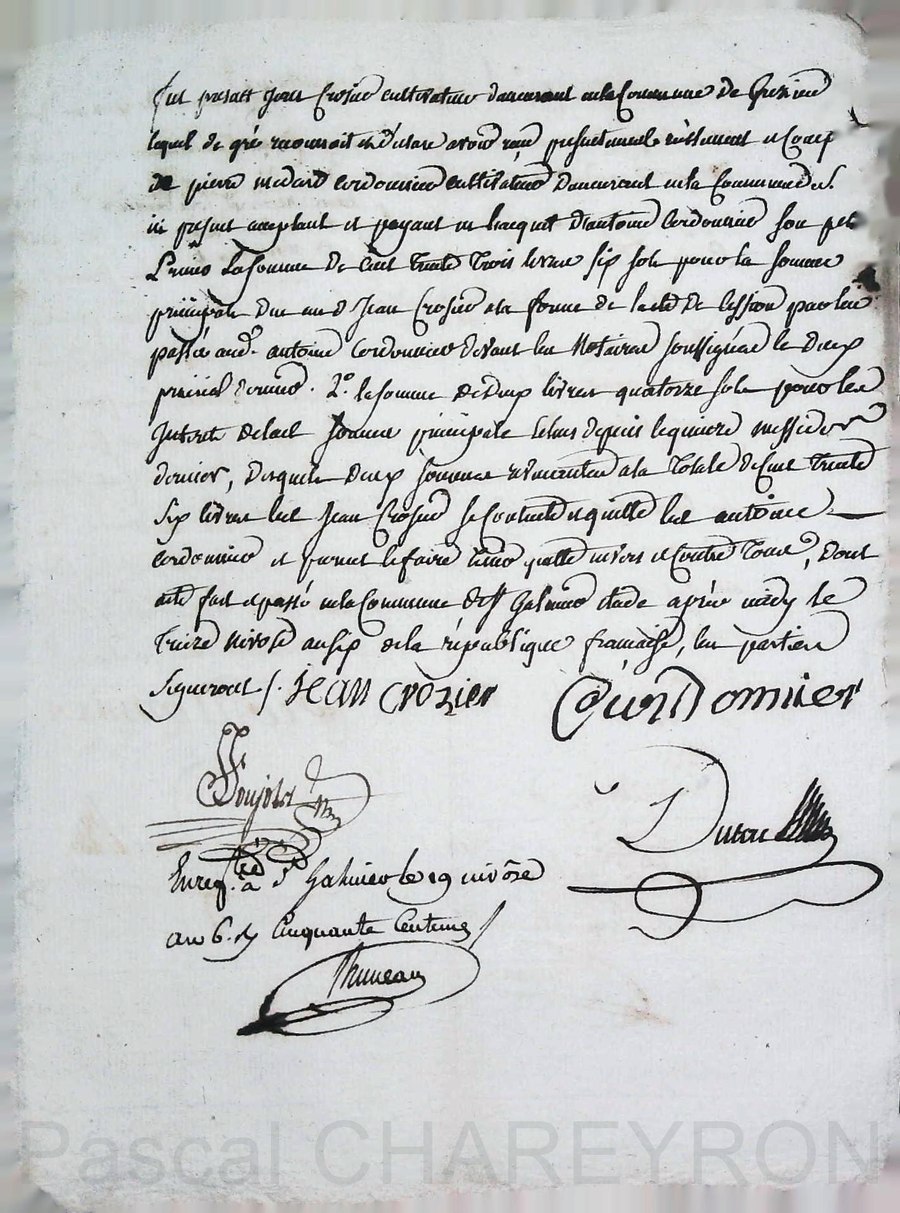 fut présent Jean Crosier cultivateur demeurant en la Commune de
lequel de gré reconnoit et déclare avoir reçu présentement réellement et Comp
de pierre médard Cordonnier cultivateur Demeurant en la Commune de S.
ici présent acceptant et payant en l'acquit d'antoine Cordonnier son père
Primo La somme de Cent Trente Trois livres six sols pour la somme
principale due aud Jean Crosier a la forme de l'acte de Cession par lui
passée aud. antoine Cordonnier devant les Notaires soussignés le Deux
prairial dernier. 2° la somme de Deux livres quatorze sols pour les
Interets de lad somme principale échus depuis le quinze messidor
dernier, Desquels Deux sommes revenantes a la Totale de Cent Trente
Six livres led Jean Crosier se Contente et quitte led antoine
Cordonnier et promet le faire tenir quitte envers et Contre Tous, Dont
acte fait et passé en la Commune de St Galmier étude après midy le
Treize nivose an six de la république française, les parties
signeront /. jean crozier Courdonnier
Dutou
Enreg. à St Galmier le 19 nivôse
an 6. Rç Cinquante Centimes /
Pascal CHAREYRON